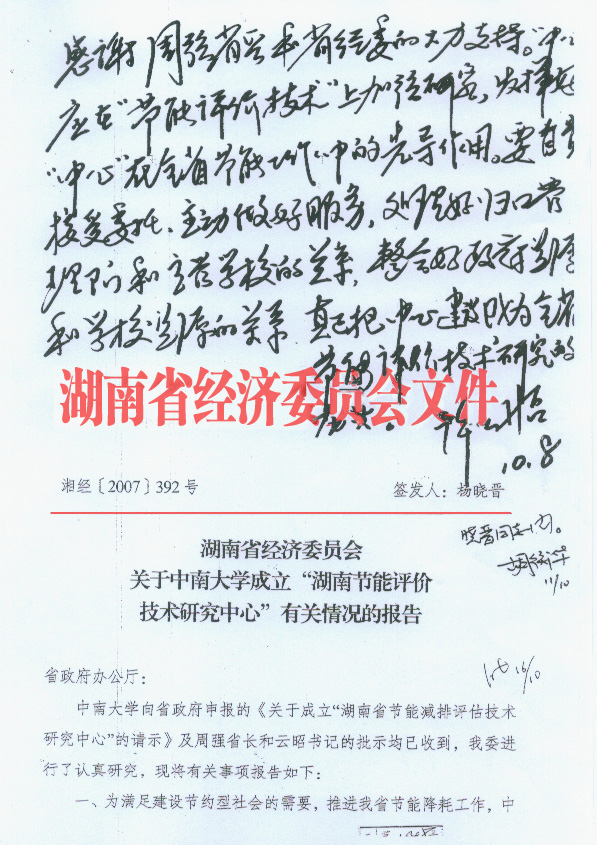 感谢周强省长和省经委的大力支持。"中心
应在"节能评价技术"上加强研究，发挥好
"中心"在全省节能工作中的先导作用。要自觉
接受委托、主动做好服务，处理好归口管
理部门和主管学校的关系，整合好政府资源
和学校资源的关系 真正把中心建设成为全省
节能评价技术研究的
10.8
湖南省经济委员会文件
湘经〔2007〕392号 签发人：杨晓晋
晓晋同志阅。
11/10
湖南省经济委员会
关于中南大学成立“湖南节能评价
技术研究中心”有关情况的报告
16/10
省政府办公厅：
中南大学向省政府申报的《关于成立“湖南省节能减排评估技术
研究中心”的请示》及周强省长和云昭书记的批示均已收到，我委进
行了认真研究，现将有关事项报告如下：
一、为满足建设节约型社会的需要，推进我省节能降耗工作，中